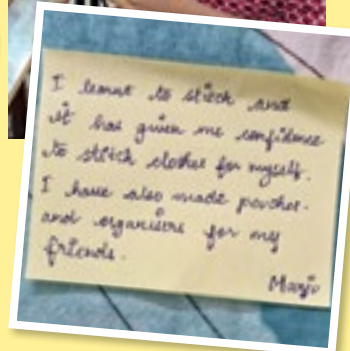 I learnt to stitch and
it has given me confidence
to stitch clothes for myself.
I have also made pouches
and organisers for my
friends.